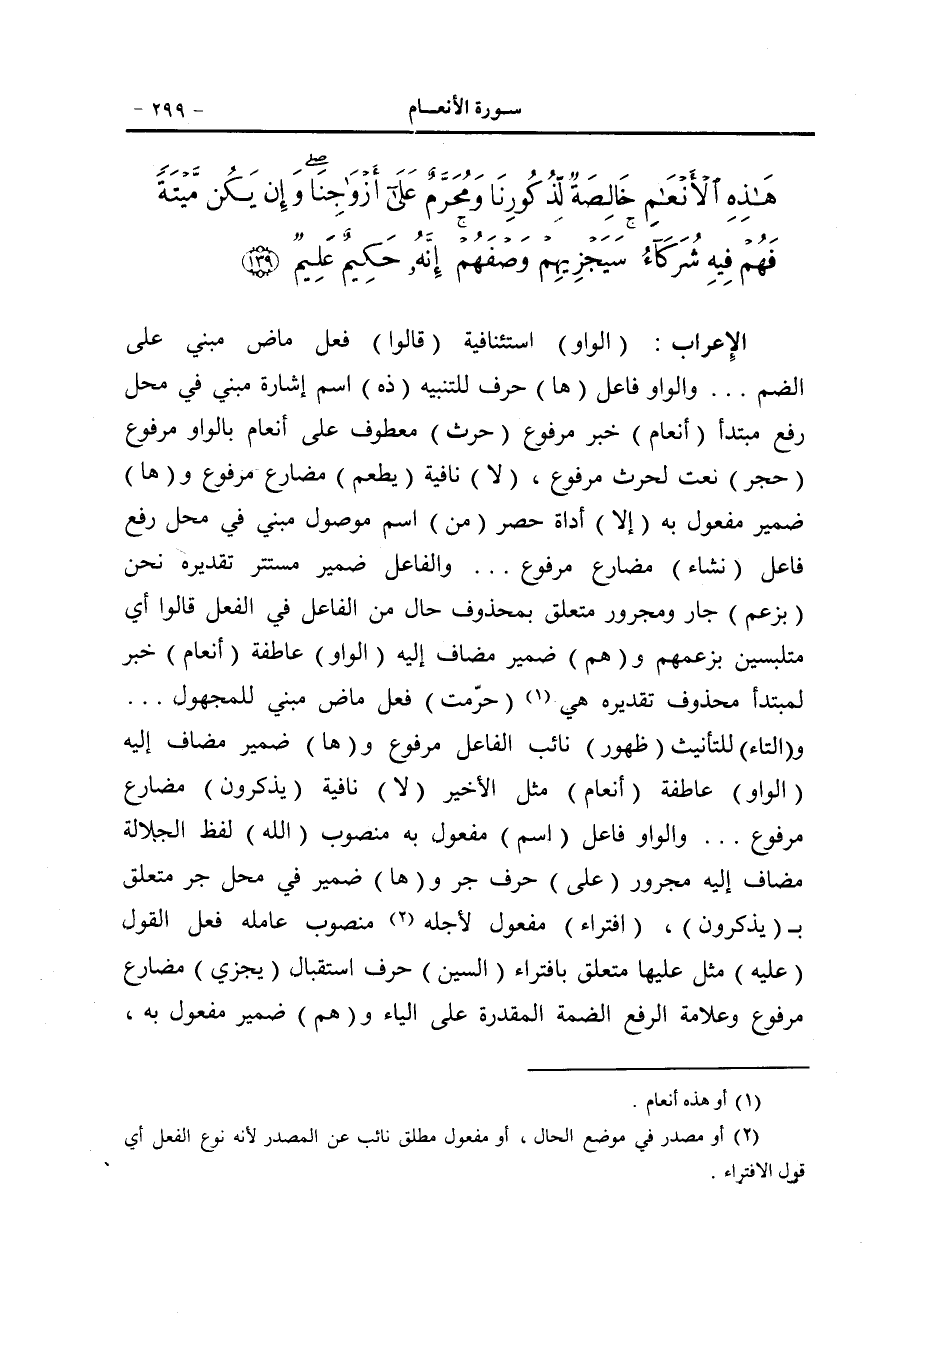 سورة الأنعام - ٢٩٩ -
هَـٰذِهِ ٱلْأَنْعَـٰمِ خَالِصَةٌ لِّذُكُورِنَا وَمُحَرَّمٌ عَلَىٰٓ أَزْوَٰجِنَا ۖ وَإِن يَكُن مَّيْتَةً
فَهُمْ فِيهِ شُرَكَآءُ ۚ سَيَجْزِيهِمْ وَصْفَهُمْ ۚ إِنَّهُۥ حَكِيمٌ عَلِيمٌ ﴿١٣٩﴾
الإعراب : ( الواو ) استئنافية ( قالوا ) فعل ماض مبني على
الضم ... والواو فاعل ( ها ) حرف للتنبيه ( ذه ) اسم إشارة مبني في محل
رفع مبتدأ ( أنعام ) خبر مرفوع ( حرث ) معطوف على أنعام بالواو مرفوع
( حجر ) نعت لحرث مرفوع ، ( لا ) نافية ( يطعم ) مضارع مرفوع و( ها )
ضمير مفعول به ( إلا ) أداة حصر ( من ) اسم موصول مبني في محل رفع
فاعل ( نشاء ) مضارع مرفوع ... والفاعل ضمير مستتر تقديره نحن
( بزعم ) جار ومجرور متعلق بمحذوف حال من الفاعل في الفعل قالوا أي
متلبسين بزعمهم و( هم ) ضمير مضاف إليه ( الواو ) عاطفة ( أنعام ) خبر
لمبتدأ محذوف تقديره هي (١) ( حرّمت ) فعل ماض مبني للمجهول ...
و(التاء) للتأنيث ( ظهور ) نائب الفاعل مرفوع و( ها ) ضمير مضاف إليه
( الواو ) عاطفة ( أنعام ) مثل الأخير ( لا ) نافية ( يذكرون ) مضارع
مرفوع ... والواو فاعل ( اسم ) مفعول به منصوب ( الله ) لفظ الجلالة
مضاف إليه مجرور ( على ) حرف جر و( ها ) ضمير في محل جر متعلق
بـ ( يذكرون ) ، ( افتراء ) مفعول لأجله (٢) منصوب عامله فعل القول
( عليه ) مثل عليها متعلق بافتراء ( السين ) حرف استقبال ( يجزي ) مضارع
مرفوع وعلامة الرفع الضمة المقدرة على الياء و( هم ) ضمير مفعول به ،
(١) أو هذه أنعام .
(٢) أو مصدر في موضع الحال ، أو مفعول مطلق نائب عن المصدر لأنه نوع الفعل أي
قول الافتراء .